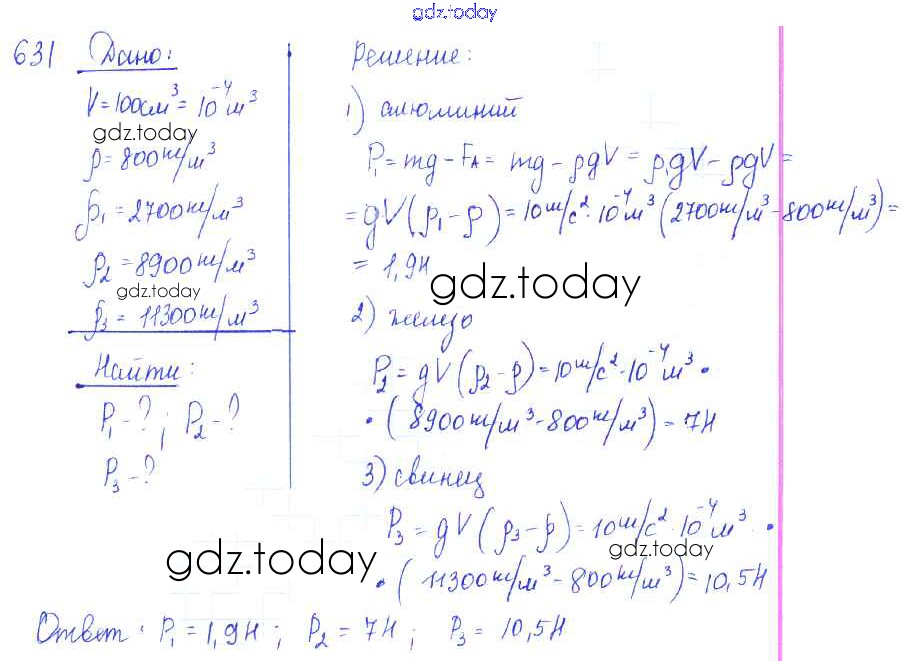 gdz.today
631 Дано:
V = 100см³ = 10⁻⁴м³
gdz.today
ρ = 800кг/м³
ρ₁ = 2700кг/м³
ρ₂ = 8900кг/м³
gdz.today
ρ₃ = 11300кг/м³
Найти:
P₁ - ? ; P₂ - ?
P₃ - ?
Решение:
1) алюминий
P₁ = mg - Fᴀ = mg - ρgV = ρ₁gV - ρgV =
= gV(ρ₁ - ρ) = 10м/с² · 10⁻⁴м³ (2700кг/м³ - 800кг/м³) =
= 1,9Н
gdz.today
2) железо
P₂ = gV(ρ₂ - ρ) = 10м/с² · 10⁻⁴м³ ·
· (8900кг/м³ - 800кг/м³) = 7Н
3) свинец
P₃ = gV(ρ₃ - ρ) = 10м/с² · 10⁻⁴м³ ·
gdz.today
gdz.today
· (11300кг/м³ - 800кг/м³) = 10,5Н
Ответ: P₁ = 1,9Н ; P₂ = 7Н ; P₃ = 10,5Н